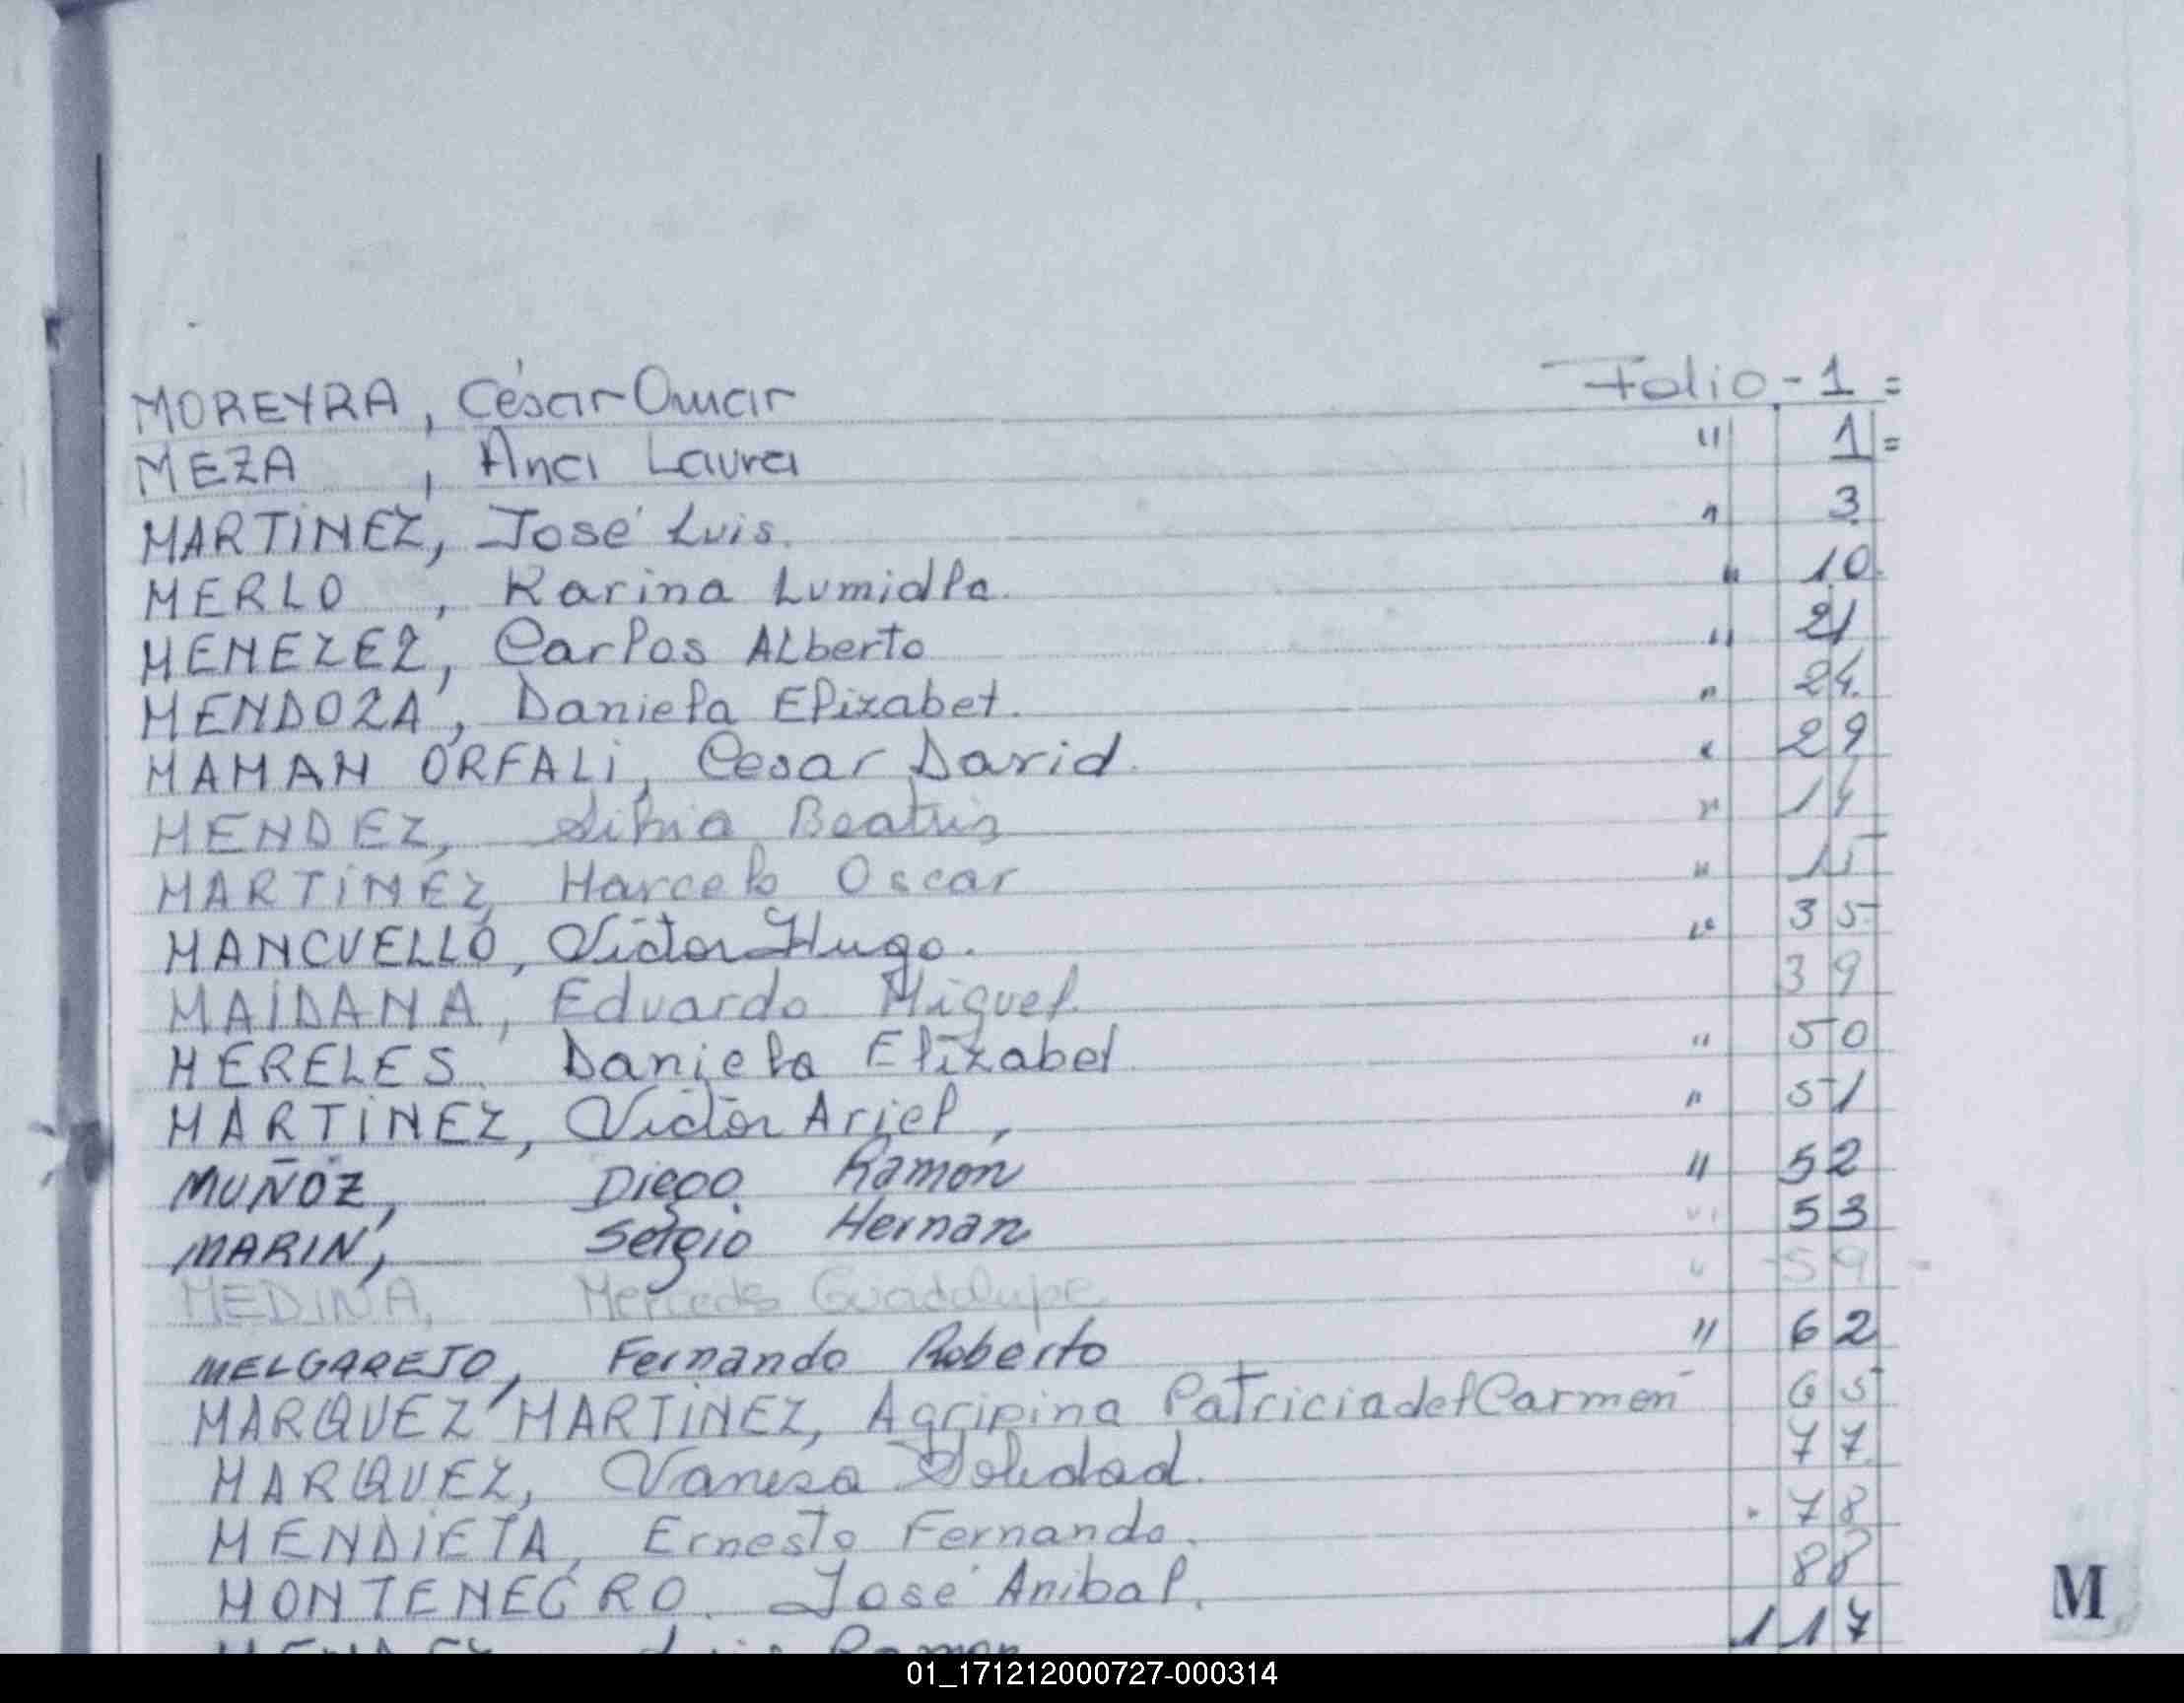 MOREYRA, César Omar Folio - 1 =
MEZA , Ana Laura " 1 =
MARTINEZ, José Luis. " 3
MERLO , Karina Lumidla. " 10.
MENEZEZ, Carlos Alberto " 21
MENDOZA, Daniela Elizabet. " 24.
MAMAN ORFALI, Cesar David. " 29
MENDEZ, Silvia Beatriz " 14
MARTINEZ, Marcelo Oscar " 15
MANCUELLO, Victor Hugo. " 35
MAIDANA, Eduardo Miguel. 39
MERELES. Daniela Elizabet " 50
MARTINEZ, Victor Ariel, " 51
MUÑOZ, Diego Ramon " 52
MARIN, Sergio Hernan " 53
MEDINA, Mercedes Guadalupe " 59
MELGAREJO, Fernando Roberto " 62
MARQUEZ MARTINEZ, Agripina Patricia del Carmen 65
MARQUEZ, Vanesa Soledad. 77
MENDIETA, Ernesto Fernando. 78
MONTENEGRO. José Anibal. 88
Luis Ramon 117
M
01_171212000727-000314